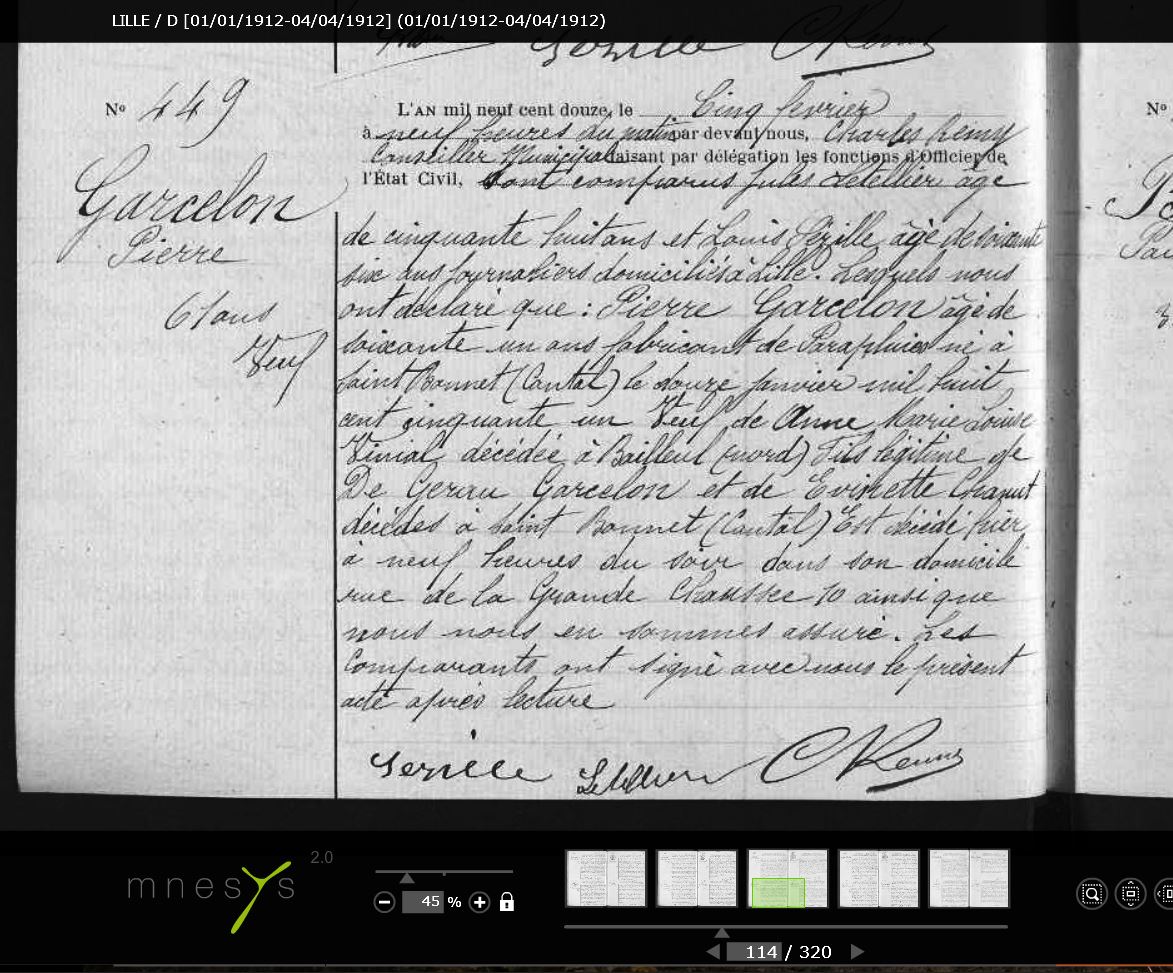 LILLE / D [01/01/1912-04/04/1912] (01/01/1912-04/04/1912)
N° 449
Garcelon
Pierre
61 ans
Veuf
L'AN mil neuf cent douze, le Cinq fevrier
à neuf heures du matin par devant nous, Charles Remy
Conseiller Municipal faisant par délégation les fonctions d'Officier de
l'État Civil, Sont comparus Jules Letellier âgé
de cinquante huit ans et Louis âgé de soixante
six ans journaliers domiciliés à Lille. Lesquels nous
ont déclaré que : Pierre Garcelon âgé de
soixante un ans fabricant de Parapluies né à
Saint Bonnet (Cantal) le douze janvier mil huit
cent cinquante un Veuf de Anne Marie Louise
Vinial décédée à Bailleul (nord) Fils légitime de
De Geraud Garcelon et de Chanut
décédés à Saint Bonnet (Cantal) Est décédé hier
à neuf heures du soir dans son domicile
rue de la Grande Chaussée 10 ainsi que
nous nous en sommes assuré. Les
Comparants ont signé avec nous le présent
acte après lecture
Letellier C Remy
N°
mnesys 2.0
45 %
114 / 320